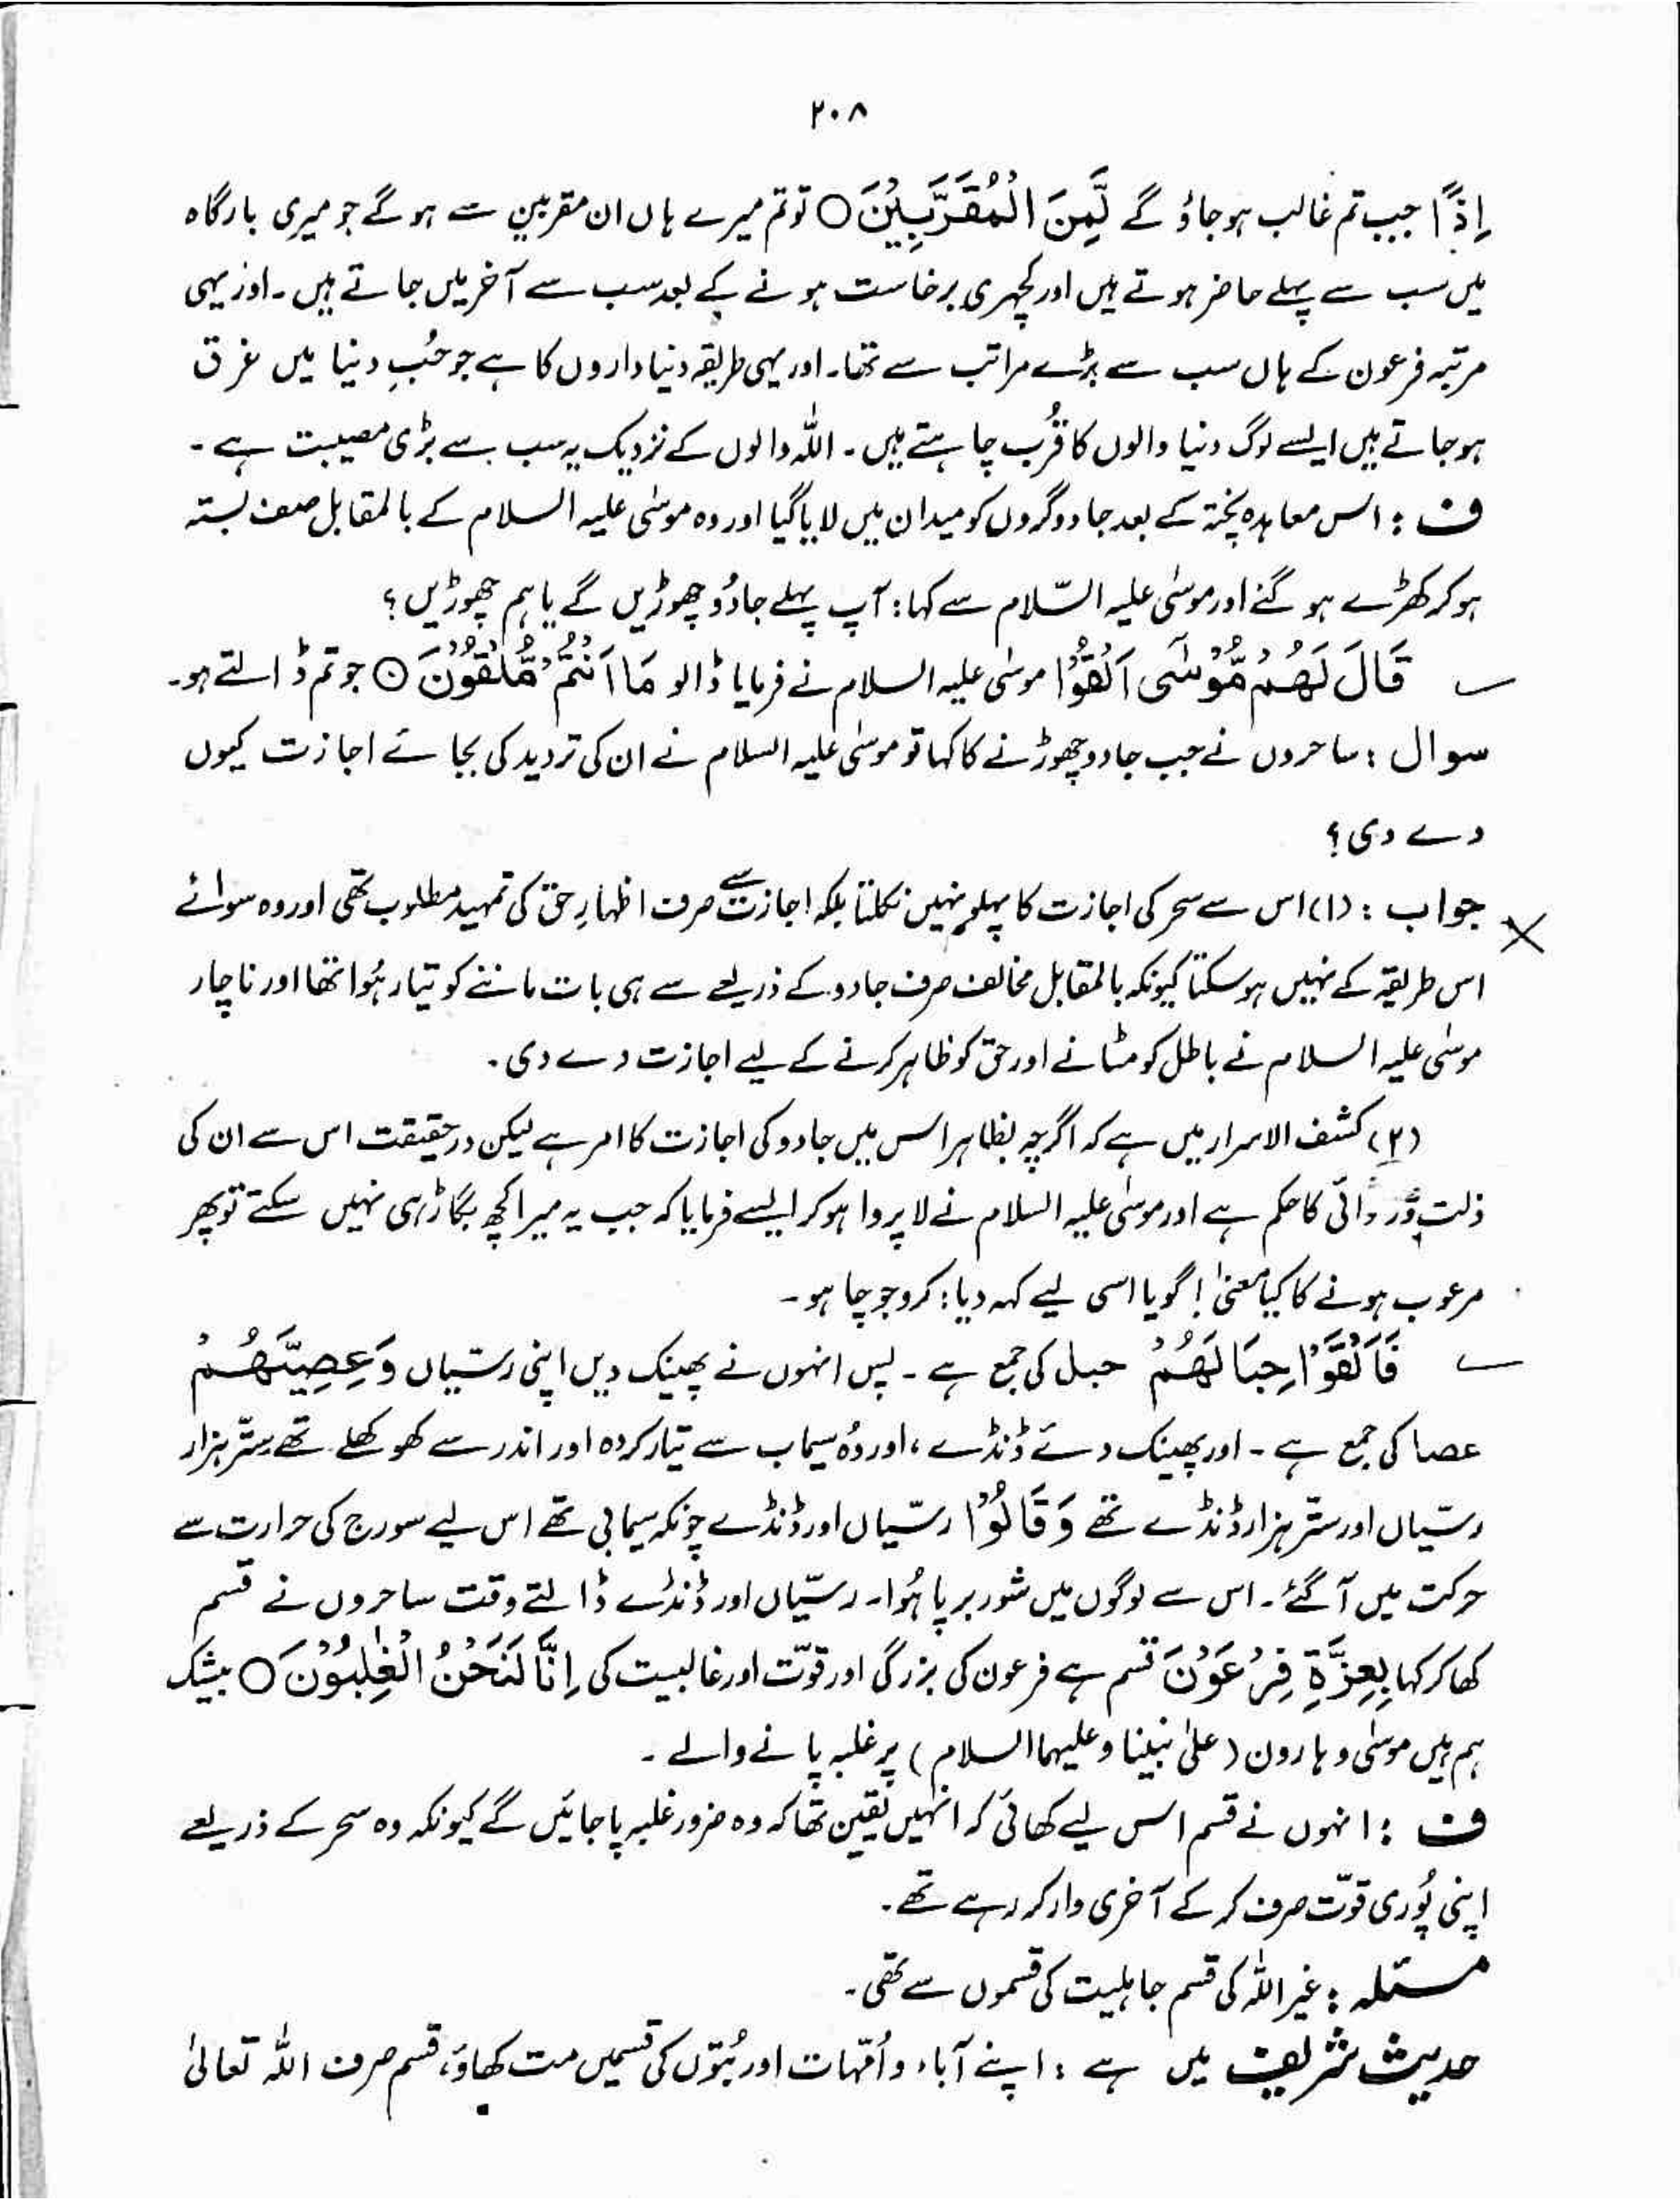 ۲۰۸
اِذًا جب تم غالب ہو جاؤ گے لَّمِنَ الْمُقَرَّبِيْنَ○ تو تم میرے ہاں ان مقربین سے ہو گے جو میری بارگاہ
میں سب سے پہلے حاضر ہوتے ہیں اور کچہری برخاست ہونے کے بعد سب سے آخر میں جاتے ہیں۔ اور یہی
مرتبہ فرعون کے ہاں سب سے بڑے مراتب سے تھا۔ اور یہی طریقہ دنیا داروں کا ہے جو حُبِ دنیا میں غرق
ہو جاتے ہیں ایسے لوگ دنیا والوں کا قُرب چاہتے ہیں۔ اللہ والوں کے نزدیک یہ سب سے بڑی مصیبت ہے۔
ف : اس معاہدہ پختہ کے بعد جادوگروں کو میدان میں لایا گیا اور وہ موسٰی علیہ السلام کے بالمقابل صف بستہ
ہو کر کھڑے ہو گئے اور موسٰی علیہ السّلام سے کہا: آپ پہلے جادُو چھوڑیں گے یا ہم چھوڑیں؟
قَالَ لَهُمْ مُّوْسٰٓى اَلْقُوْا موسٰی علیہ السلام نے فرمایا ڈالو مَا اَنْتُمْ مُّلْقُوْنَ○ جو تم ڈالتے ہو۔
سوال : ساحروں نے جب جادو چھوڑنے کا کہا تو موسٰی علیہ السلام نے ان کی تردید کی بجائے اجازت کیوں
دے دی؟
جواب : (۱) اس سے سحر کی اجازت کا پہلو نہیں نکلتا بلکہ اجازت سے صرف اظہارِ حق کی تمہید مطلوب تھی اور وہ سوائے
اس طریقہ کے نہیں ہو سکتا کیونکہ بالمقابل مخالف صرف جادو کے ذریعے سے ہی بات ماننے کو تیار ہُوا تھا اور ناچار
موسٰی علیہ السلام نے باطل کو مٹانے اور حق کو ظاہر کرنے کے لیے اجازت دے دی۔
(۲) کشف الاسرار میں ہے کہ اگرچہ بظاہر اس میں جادو کی اجازت کا امر ہے لیکن درحقیقت اس سے ان کی
ذلت و رسوائی کا حکم ہے اور موسٰی علیہ السلام نے لاپروا ہو کر ایسے فرمایا کہ جب یہ میرا کچھ بگاڑ ہی نہیں سکتے تو پھر
مرعوب ہونے کا کیا معنٰی! گویا اسی لیے کہہ دیا: کرو جو چاہو۔
فَاَلْقَوْا حِبَالَهُمْ حبل کی جمع ہے۔ پس انہوں نے پھینک دیں اپنی رسّیاں وَعِصِيَّهُمْ
عصا کی جمع ہے۔ اور پھینک دئے ڈنڈے، اور وُہ سیماب سے تیار کردہ اور اندر سے کھوکھلے تھے ستّر ہزار
رسّیاں اور ستّر ہزار ڈنڈے تھے وَقَالُوْا رسّیاں اور ڈنڈے چونکہ سیمابی تھے اس لیے سورج کی حرارت سے
حرکت میں آ گئے۔ اس سے لوگوں میں شور برپا ہُوا۔ رسّیاں اور ڈنڈے ڈالتے وقت ساحروں نے قسم
کھا کر کہا بِعِزَّةِ فِرْعَوْنَ قسم ہے فرعون کی بزرگی اور قوّت اور غالبیت کی اِنَّا لَنَحْنُ الْغٰلِبُوْنَ○ بیشک
ہم ہیں موسٰی و ہارون (علٰی نبینا و علیہما السلام) پر غلبہ پانے والے۔
ف : انہوں نے قسم اس لیے کھائی کہ انہیں یقین تھا کہ وہ ضرور غلبہ پا جائیں گے کیونکہ وہ سحر کے ذریعے
اپنی پُوری قوّت صرف کر کے آخری وار کر رہے تھے۔
مسئلہ : غیر اللہ کی قسم جاہلیت کی قسموں سے تھی۔
حدیث شریف میں ہے : اپنے آباء و اُمّہات اور بُتوں کی قسمیں مت کھاؤ، قسم صرف اللہ تعالیٰ